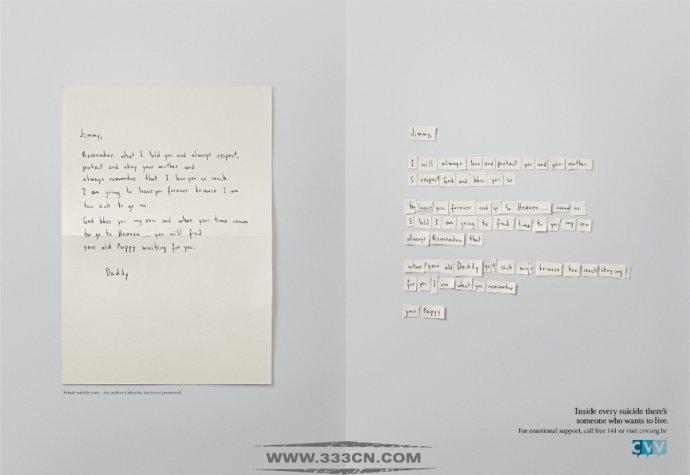 Jimmy,
Remember what I told you and always respect,
protect and obey your mother and
always remember that I love you so much.
I am going to leave you forever because I am
too sick to go on.
God bless you my son and when your time comes
to go to Heaven ... you will find
your old Pappy waiting for you.
Daddy
Actual suicide note - the author's identity has been preserved.
Jimmy,
I will always love and protect you and your mother
I respect God and bless you so
to leave you forever and go to Heaven ... comes on.
I told I am going to find time to you my son
always Remember that
when your old Daddy sick because too much obeying
for you I am what you remember
your Pappy
Inside every suicide there's
someone who wants to live.
For emotional support, call free 141 or visit cvv.org.br
CVV
WWW.333CN.COM